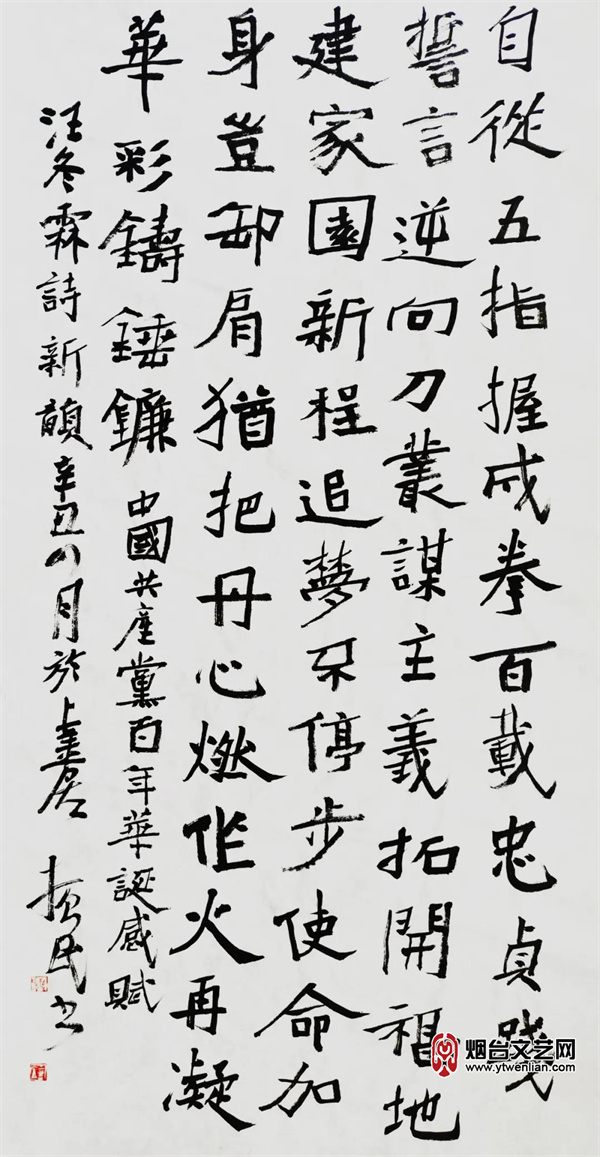 自從五指握成拳百載忠貞踐
誓言逆向刀叢謀主義拓開福地
建家園新程追夢不停步使命加
身豈卸肩猶把丹心燃作火再凝
華彩鑄錘鐮 中國共產黨百年華誕感賦
汪冬霖詩新韻辛丑四月於上善居 振民書
烟台文艺网
www.ytwenlian.com